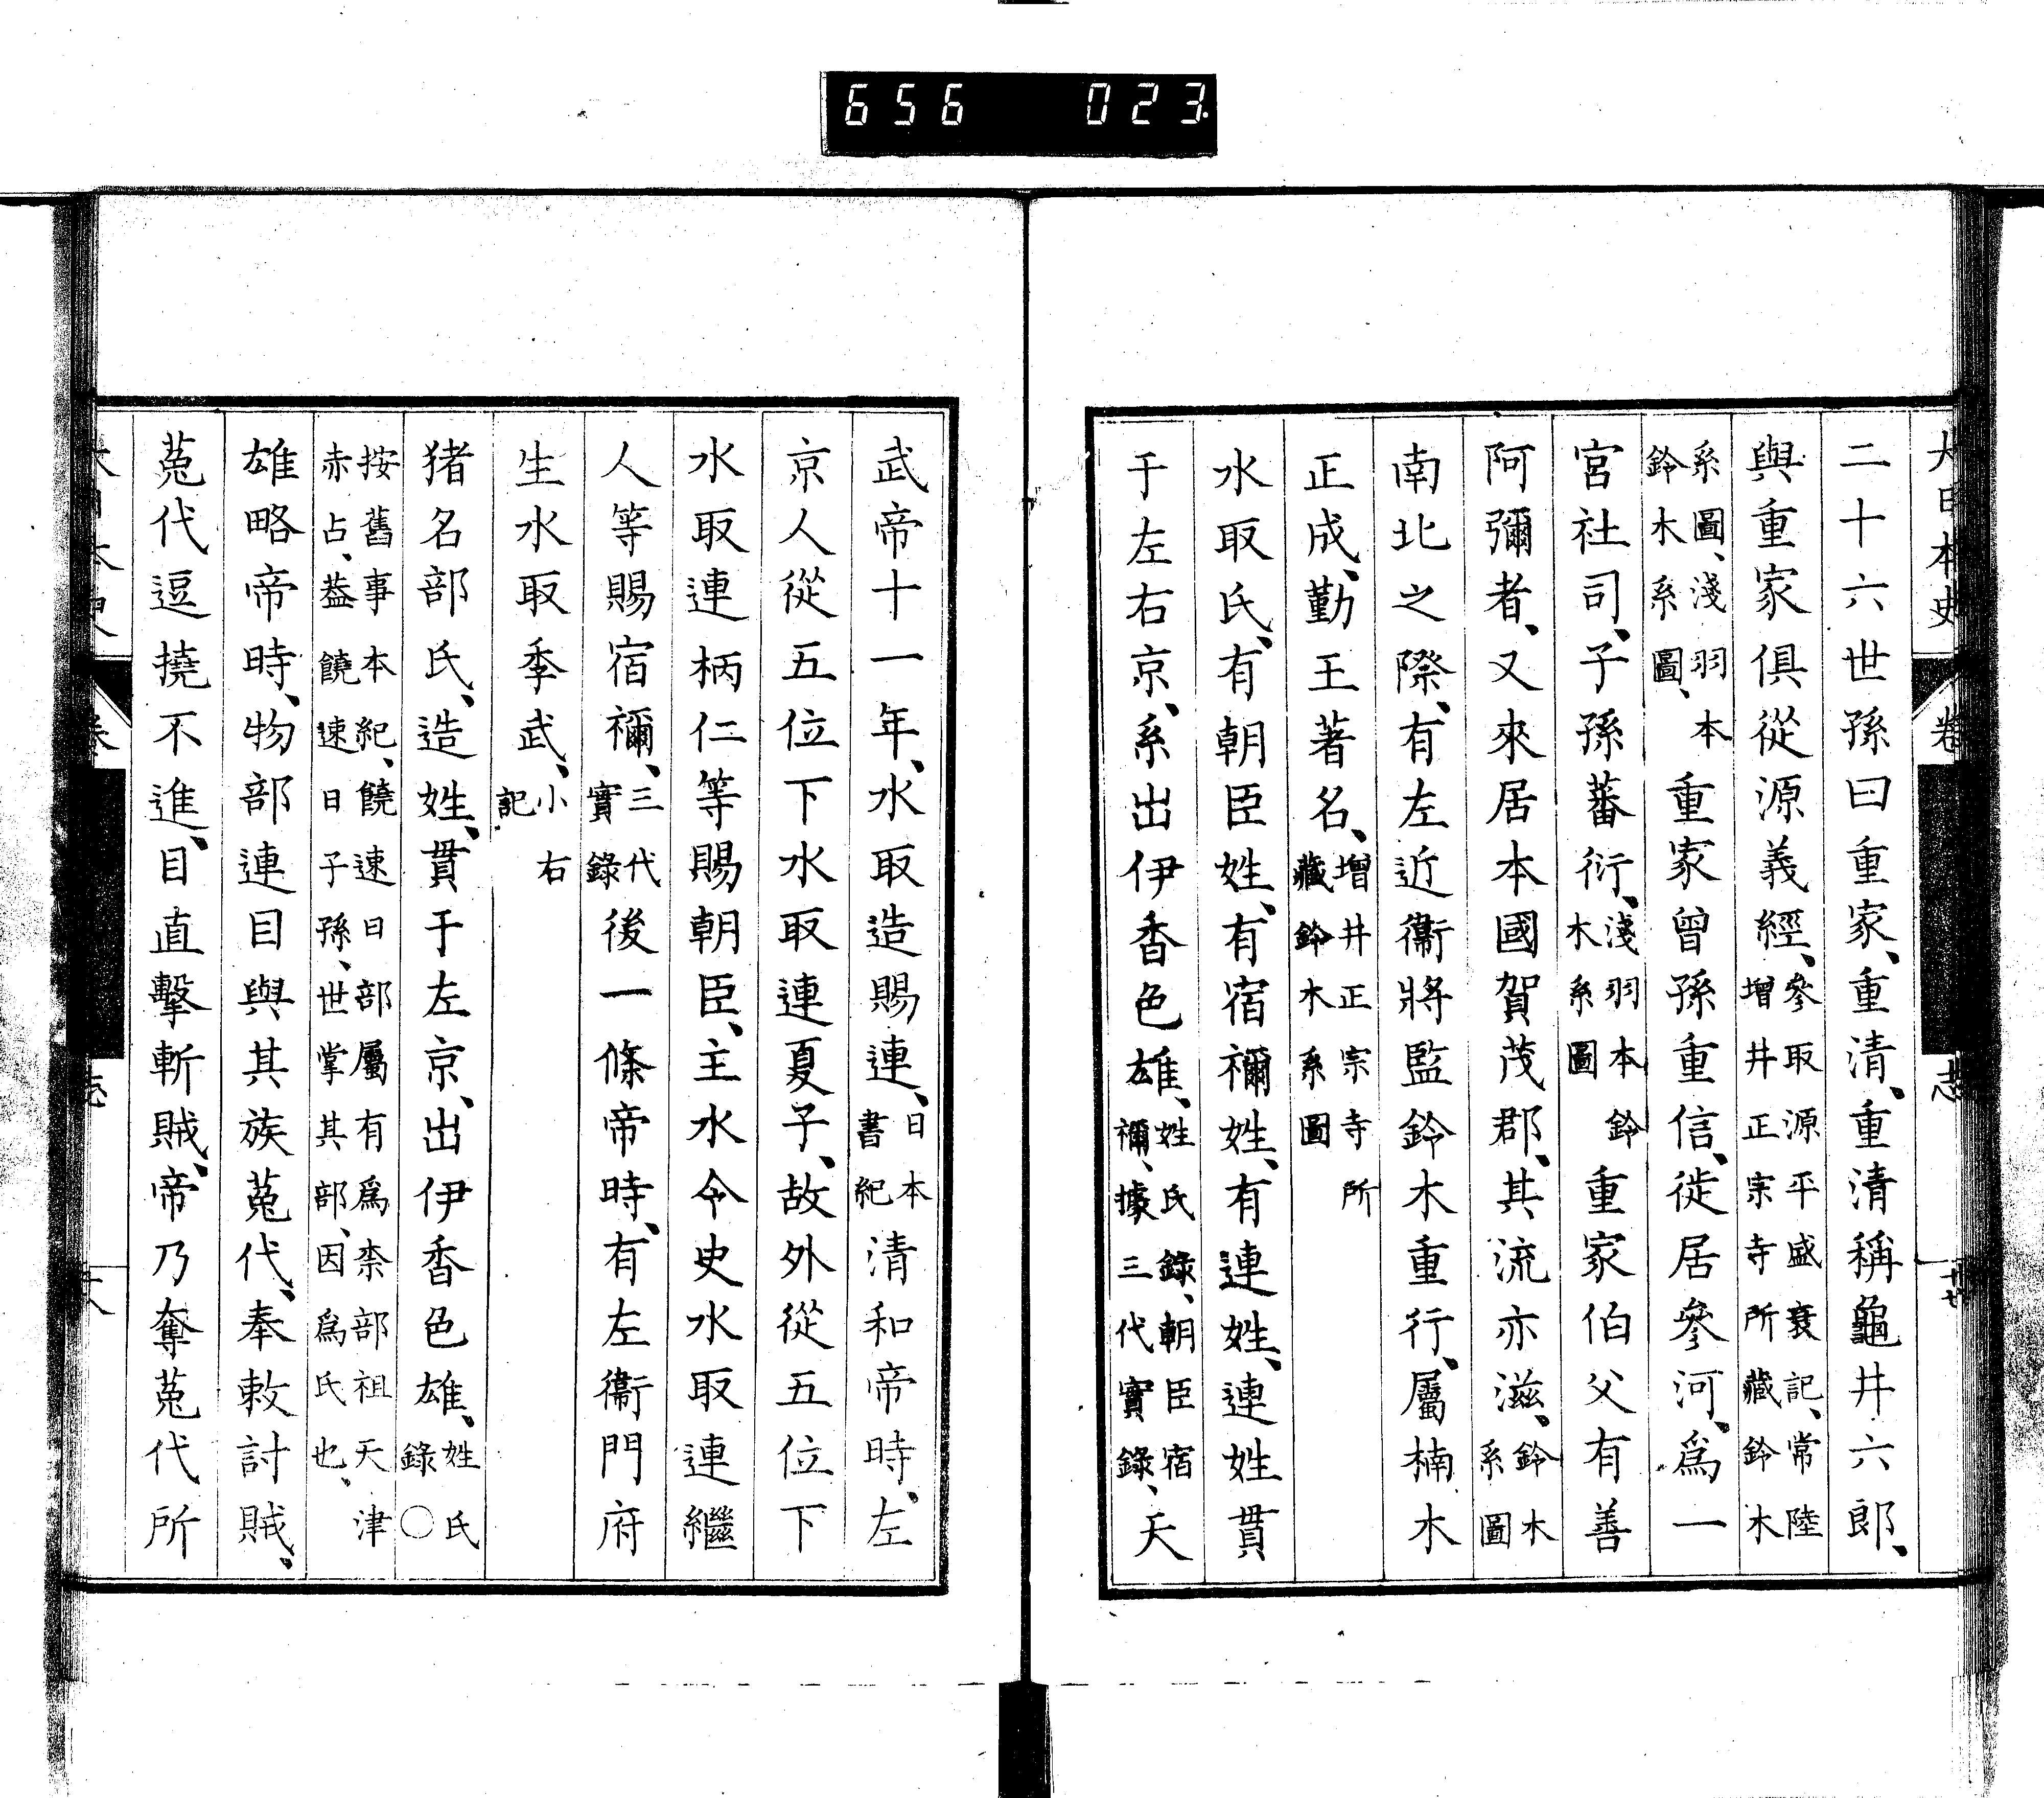 656 023
大日本史 卷 志
二十六世孫曰重家、重清、重清稱龜井六郎、
與重家俱從源義經、參取源平盛衰記、常陸增井正宗寺所藏鈴木
系圖、淺羽本鈴木系圖、重家曾孫重信、徙居參河、爲一
宮社司、子孫蕃衍、淺羽本鈴木系圖重家伯父有善
阿彌者、又來居本國賀茂郡、其流亦滋、鈴木系圖
南北之際、有左近衞將監鈴木重行、屬楠木
正成、勤王著名、增井正宗寺所藏鈴木系圖
水取氏、有朝臣姓、有宿禰姓、有連姓、連姓貫
于左右京、系出伊香色雄、姓氏錄、朝臣宿禰、據三代實錄、天
武帝十一年、水取造賜連、日本書紀清和帝時、左
京人從五位下水取連夏子、故外從五位下
水取連柄仁等賜朝臣、主水令史水取連繼
人等賜宿禰、三代實錄後一條帝時、有左衞門府
生水取季武、小右記
猪名部氏、造姓、貫于左京、出伊香色雄、姓氏錄〇
按舊事本紀、饒速日部屬有爲柰部祖天津赤占、葢饒速日子孫、世掌其部、因爲氏也、
雄略帝時、物部連目與其族菟代、奉敕討賊、
菟代逗撓不進、目直擊斬賊、帝乃奪菟代所
大日本史 卷 志